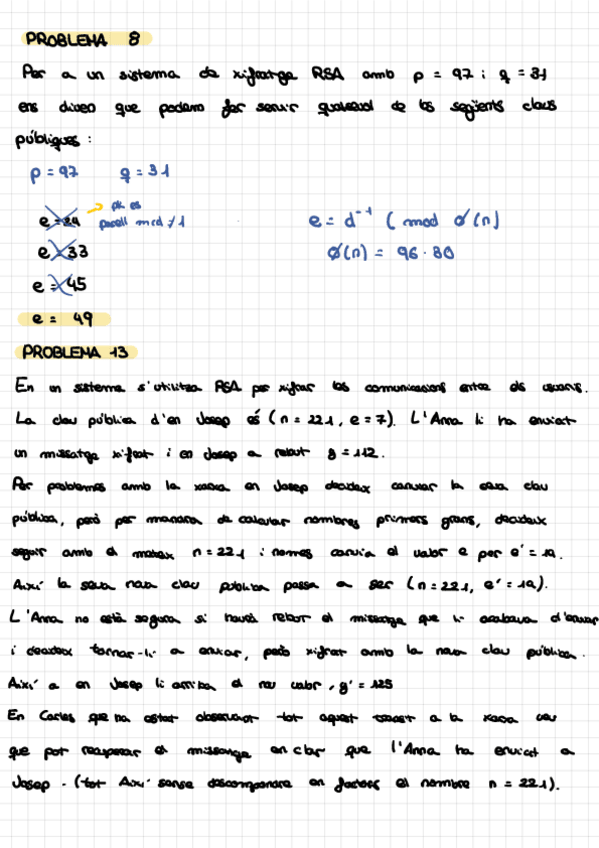 PROBLEMA 8
Per a un sistema de xifratge RSA amb p = 97 i q = 31
ens diuen que podem fer servir qualsevol de les següents claus
públiques :
p = 97 q = 31
e = 24 → pk és
parell mcd ≠ 1
e = d⁻¹ ( mod ø (n)
e = 33
ø(n) = 96 · 30
e = 45
e = 49
PROBLEMA 13
En un sistema s'utilitza RSA per xifrar les comunicacions entre els usuaris.
La clau pública d'en Josep és (n = 221, e = 7). L'Anna li ha enviat
un missatge xifrat i en Josep a rebut y = 112.
Per problemes amb la xarxa en Josep decideix canviar la seva clau
pública, però per mandra de calcular nombres primers grans, decideix
seguir amb el mateix n = 221 i només canvia el valor e per e' = 19.
Així la seva nova clau pública passa a ser (n = 221, e' = 19).
L'Anna no està segura si haurà rebut el missatge que li acabava d'enviar
i decideix tornar-li a enviar, però xifrat amb la nova clau pública.
Així a en Josep li arriba el nou valor, y' = 125
En Carles que ha estat observant tot aquest trànsit a la xarxa veu
que pot recuperar el missatge en clar que l'Anna ha enviat a
Josep. (tot Així sense descompondre en factors el nombre n = 221).